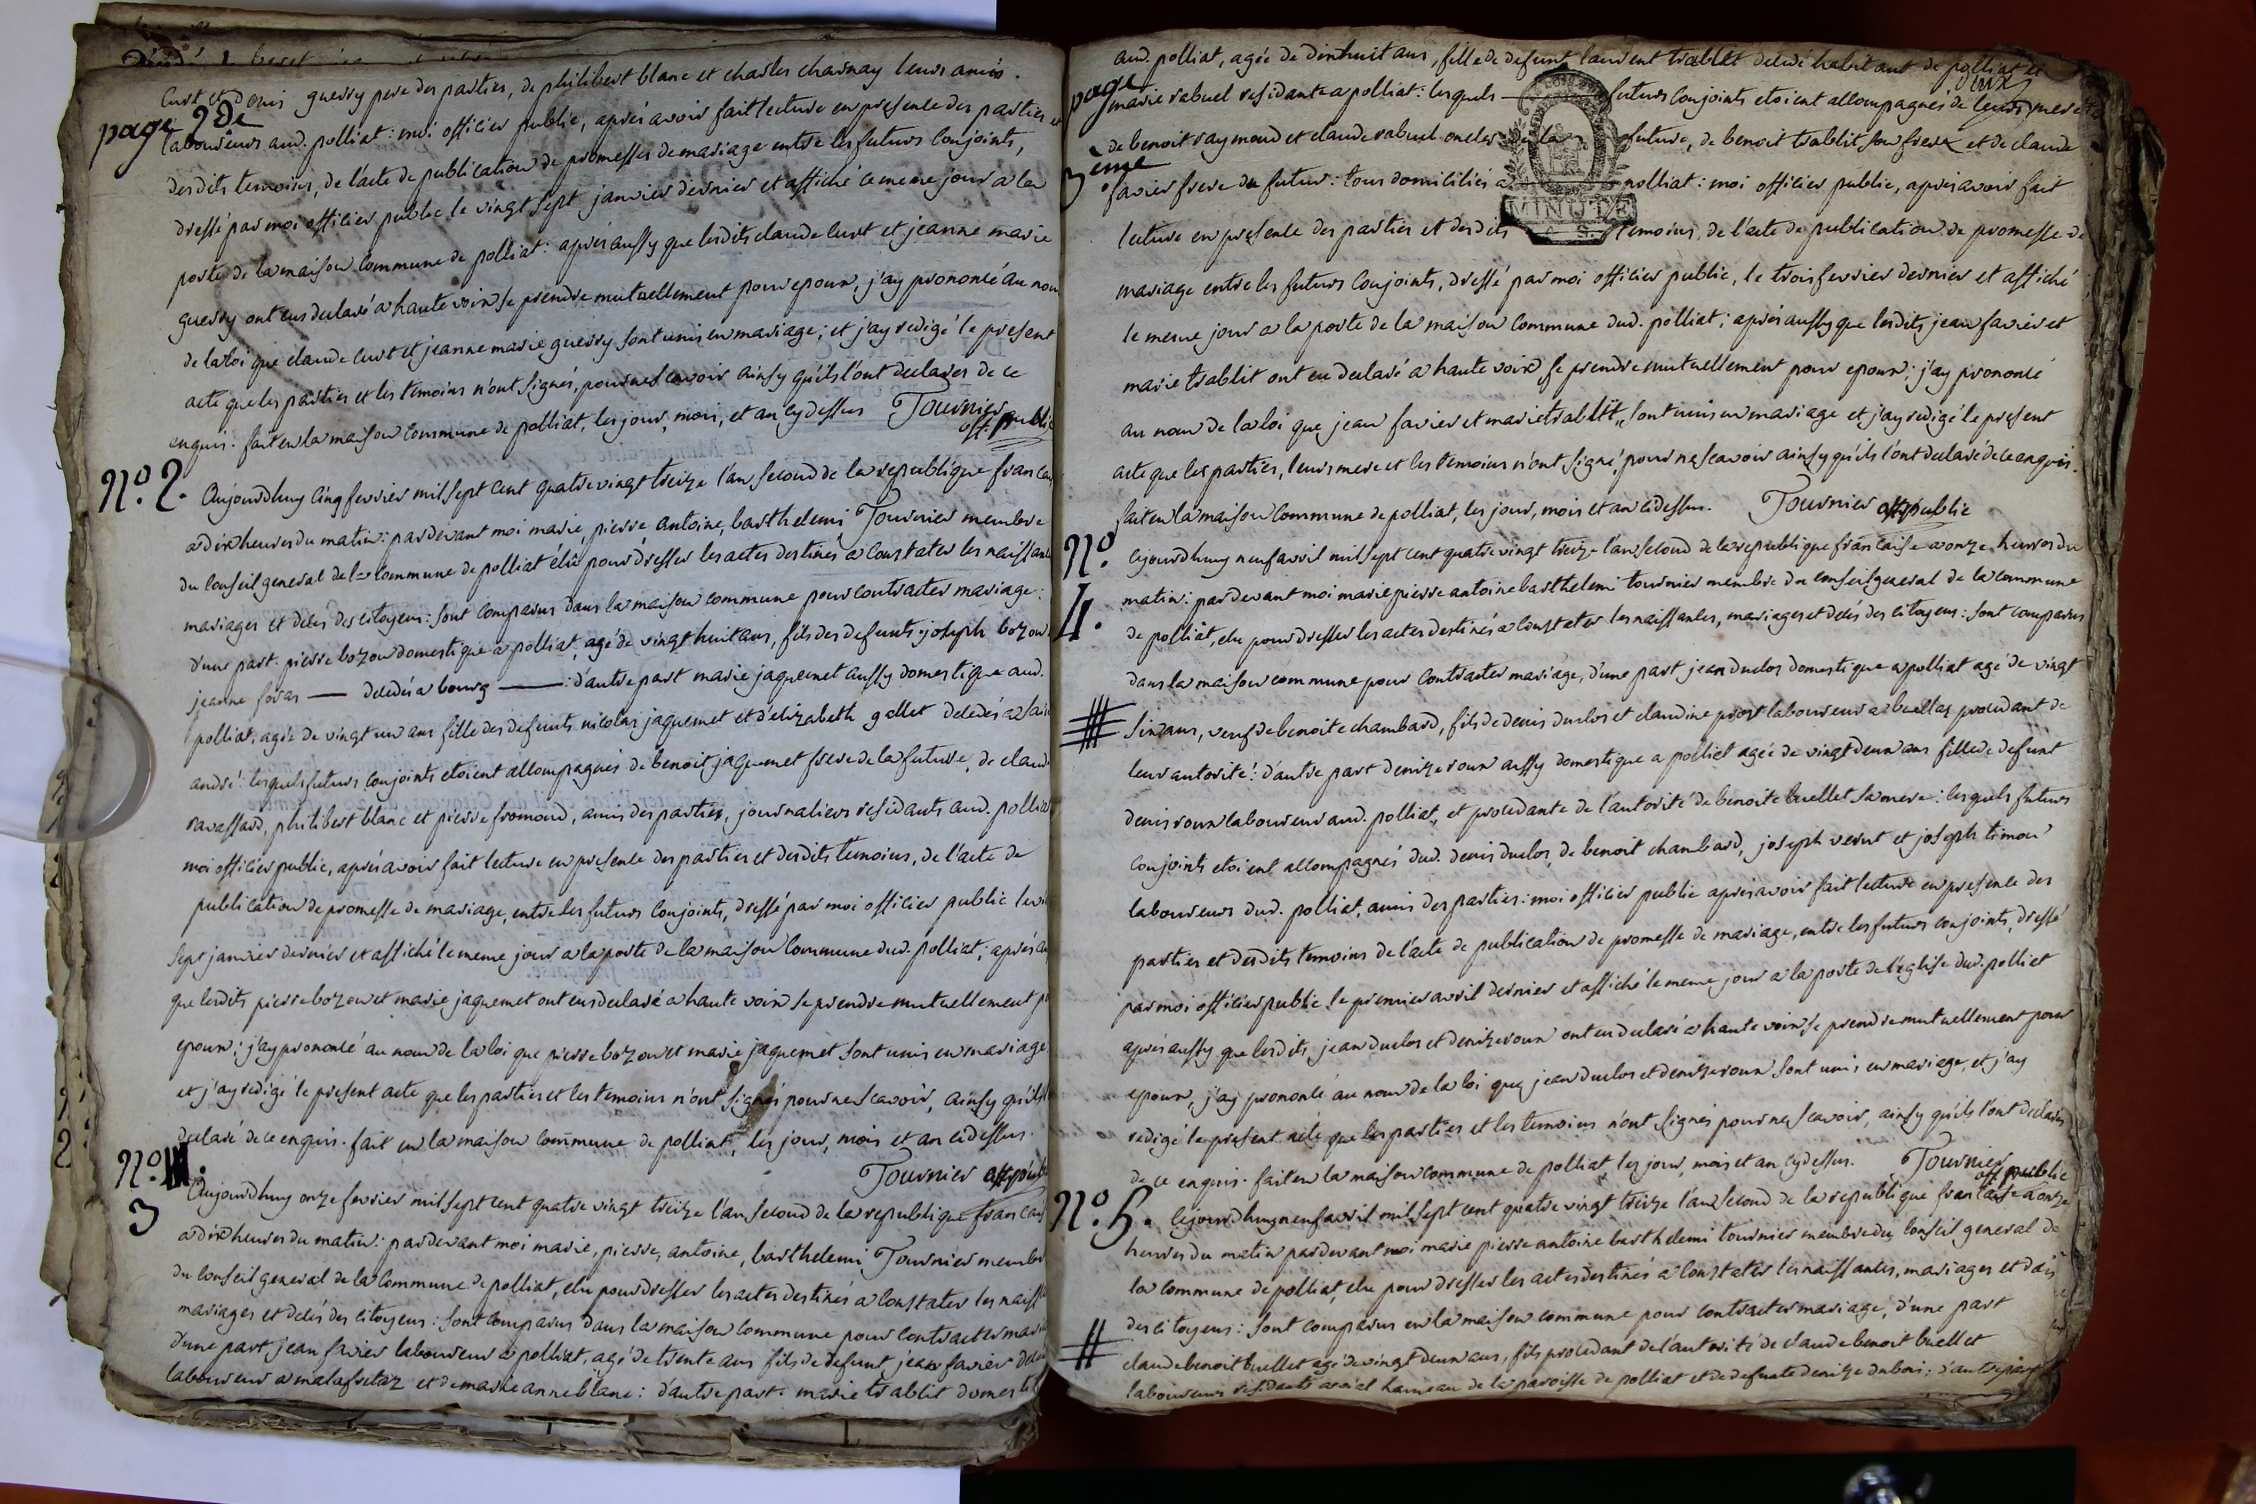 curt et denis guerry pere des parties, de philibert blanc et charles charnay leurs amis
page 2de
laboureurs aud. polliat : moi officier public, après avoir fait lecture en presence des parties et
desdits temoins, de l'acte de publication de promesses de mariage entre les futurs conjoints,
dressé par moi officier public le vingt sept janvier dernier et affiché ce meme jour a la
porte de la maison commune de polliat : après aussy que lesdits claude curt et jeanne marie
guerry ont eus declaré a haute voix se prendre mutuellement pour epoux, j'ay prononcé au nom
de la loi que claude curt et jeanne marie guerry sont unis en mariage ; et j'ay redigé le present
acte que les parties et les temoins n'ont signés, pour ne scavoir ainsy qu'ils l'ont declarés de ce
enquis. fait en la maison commune de polliat, les jour, mois, et an cy dessus Tournier
off. public
N.o 2.
Aujourdhuy cinq fevrier mil sept cent quatre vingt treize l'an second de la republique francai
a dix heures du matin : pardevant moi marie, pierre antoine, barthelemi Tournier membre
du conseil general de la commune de polliat élu pour dresser les actes destinés a constater les naissan
mariages et deces des citoyens : sont comparus dans la maison commune pour contracter mariage :
d'une part. pierre bozon domestique a polliat, agé de vingt huit ans, fils des defunts joseph bozon
jeanne foras — decedés a bourg — : d'autre part marie jaquemet aussy domestique aud.
polliat, agée de vingt un ans fille des defunts nicolas jaquemet et d'elizabeth gallet decedés a sain
andré : lesquels futurs conjoints etoient accompagnés de benoit jaquemet frere de la future, de claud
ravassard, philibert blanc et pierre fromond, amis des parties, journaliers residants aud. polliat
moi officier public, après avoir fait lecture en presence des parties et desdits temoins, de l'acte de
publication de promesse de mariage, entre les futurs conjoints, dressé par moi officier public le vin
sept janvier dernier et affiché le meme jour a la porte de la maison commune dud. polliat ; après au
que lesdits pierre bozon et marie jaquemet ont eus declaré a haute voix se prendre mutuellement po
epoux ; j'ay prononcé au nom de la loi que pierre bozon et marie jaquemet sont unis en mariage
et j'ay redigé le present acte que les parties et les temoins n'ont signés pour ne scavoir, ainsy qu'ils l
declaré de ce enquis. fait en la maison commune de polliat, les jour, mois et an cidessus.
Tournier off. public
N.o
3
Aujourdhuy onze fevrier mil sept cent quatre vingt treize l'an second de la republique francais
a dix heures du matin : pardevant moi marie, pierre, antoine, barthelemi Tournier membr
du conseil general de la commune de polliat, elu pour dresser les actes destinés a constater les naiss
mariages et decés des citoyens : sont comparus dans la maison commune pour contracter mari
d'une part, jean favier laboureur a polliat, agé de trente ans fils de defunt jean favier deced
laboureur a malafretaz et de marie anne blanc : d'autre part. marie trablit domesti
aud. polliat, agée de dixhuit ans, fille de defunt laurent trablit decedé habitant de polliat et
page
3eme
marie rabuel residante a polliat : lesquels — futurs conjoints etoient accompagnés de leurs meres
deux
de benoit raymond et claude rabuel oncles de la future, de benoit trablit son frere et de claude
favier frere du futur : tous domiciliés a polliat : moi officier public, après avoir fait
MINUTE
lecture en presence des parties et desdits temoins, de l'acte de publication de promesse de
mariage entre les futurs conjoints, dressé par moi officier public, le trois fevrier dernier et affiché
le meme jour a la porte de la maison commune dud. polliat ; après aussy que lesdits jean favier et
marie trablit ont eu declaré a haute voix se prendre mutuellement pour epoux : j'ay prononcé
au nom de la loi que jean favier et marie trablit, sont unis en mariage et j'ay redigé le present
acte que les parties, leurs mere et les temoins n'ont signé, pour ne scavoir ainsy qu'ils l'ont declaré de ce enquis.
fait en la maison commune de polliat, les jour, mois et an cidessus. Tournier off. public
N.o
4.
Cejourdhuy neuf avril mil sept cent quatre vingt treize l'an second de la republique francaise a onze heures du
matin : pardevant moi marie pierre antoine barthelemi tournier membre du conseil general de la commune
de polliat, elu pour dresser les actes destinés a constater les naissances, mariages et decés des citoyens : sont comparus
dans la maison commune pour contracter mariage, d'une part jean duclos domestique a polliat agé de vingt
six ans, veuf de benoite chambard, fils de denis duclos et claudine prost laboureurs a buellas procedant de
leur autorité : d'autre part denize roux aussy domestique a polliat agée de vingt deux ans fille de defunt
denis roux laboureur aud. polliat, et procedante de l'autorité de benoite buellet sa mere : lesquels futurs
conjoints etoient accompagnés dud. denis duclos, de benoit chambard, joseph verut et joseph timon
laboureurs dud. polliat, amis des parties : moi officier public après avoir fait lecture en presence des
parties et desdits temoins de l'acte de publication de promesse de mariage, entre les futurs conjoints, dressé
par moi officier public le premier avril dernier et affiché le meme jour a la porte de l'eglise dud. polliat
après aussy que lesdits jean duclos et denize roux ont eu declaré a haute voix se prendre mutuellement pour
epoux, j'ay prononcé au nom de la loi que jean duclos et denize roux sont unis en mariage, et j'ay
redigé le present acte que les parties et les temoins n'ont signés pour ne scavoir, ainsy qu'ils l'ont declarés
de ce enquis. fait en la maison commune de polliat, les jour, mois et an cydessus. Tournier
off. public
N.o 5.
Cejourdhuy neuf avril mil sept cent quatre vingt treize l'an second de la republique francaise a onze
heures du matin pardevant moi marie pierre antoine barthelemi tournier membre du conseil general de
la commune de polliat, elu pour dresser les actes destinés a constater les naissances, mariages et decés
des citoyens : sont comparus en la maison commune pour contracter mariage, d'une part
claude benoit buellet agé de vingt deux ans, fils procedant de l'autorité de claude benoit buellet
laboureurs residants hameau de la paroisse de polliat et de defunte denize dubois ; d'autre part